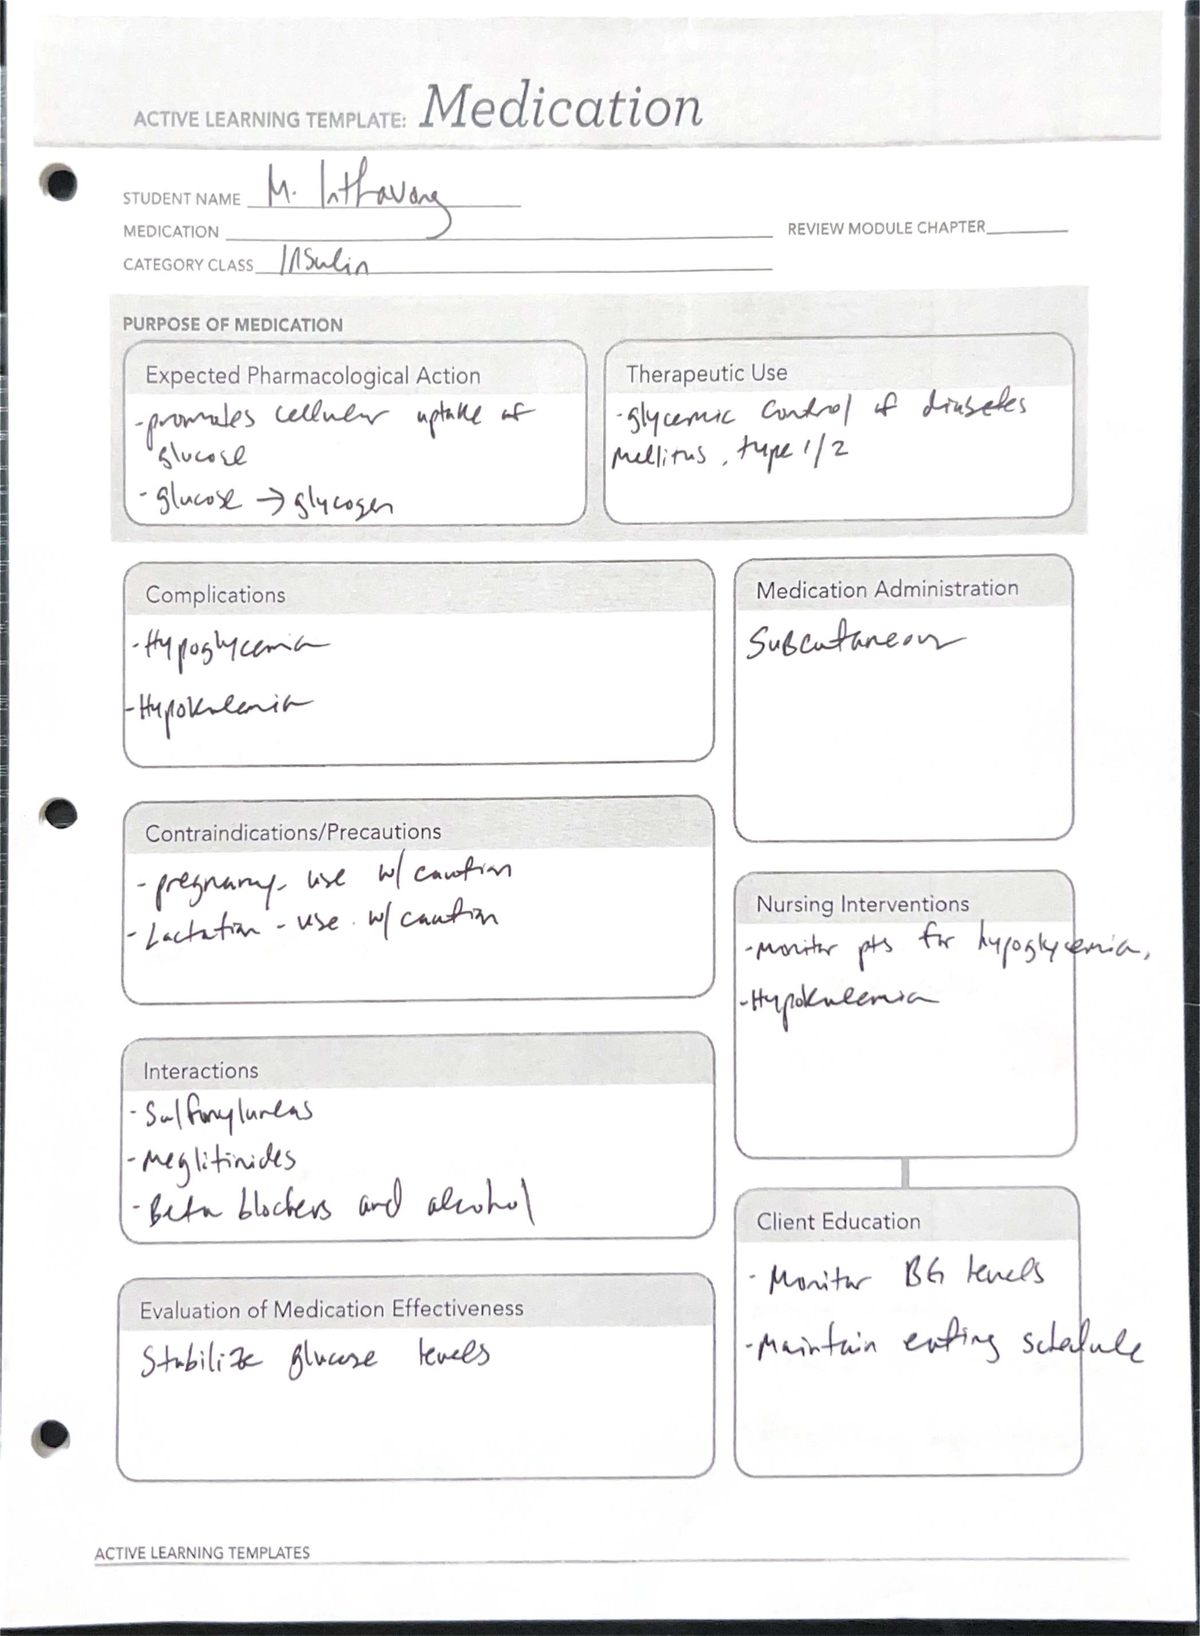 ACTIVE LEARNING TEMPLATE: Medication
STUDENT NAME M. Inthavong
MEDICATION
REVIEW MODULE CHAPTER
CATEGORY CLASS Insulin
PURPOSE OF MEDICATION
Expected Pharmacological Action
-promotes cellular uptake of
glucose
- glucose → glycogen
Therapeutic Use
-glycemic control of diabetes
Mellitus, type 1/2
Complications
-Hypoglycemia
-Hypokalemia
Medication Administration
Subcutaneous
Contraindications/Precautions
- pregnancy- use w/ caution
- Lactation - use w/ caution
Nursing Interventions
-Monitor pts for hypoglycemia,
-Hypokalemia
Interactions
- Sulfonylureas
- Meglitinides
- Beta blockers and alcohol
Client Education
- Monitor BG levels
-Maintain eating schedule
Evaluation of Medication Effectiveness
Stabilize glucose levels
ACTIVE LEARNING TEMPLATES